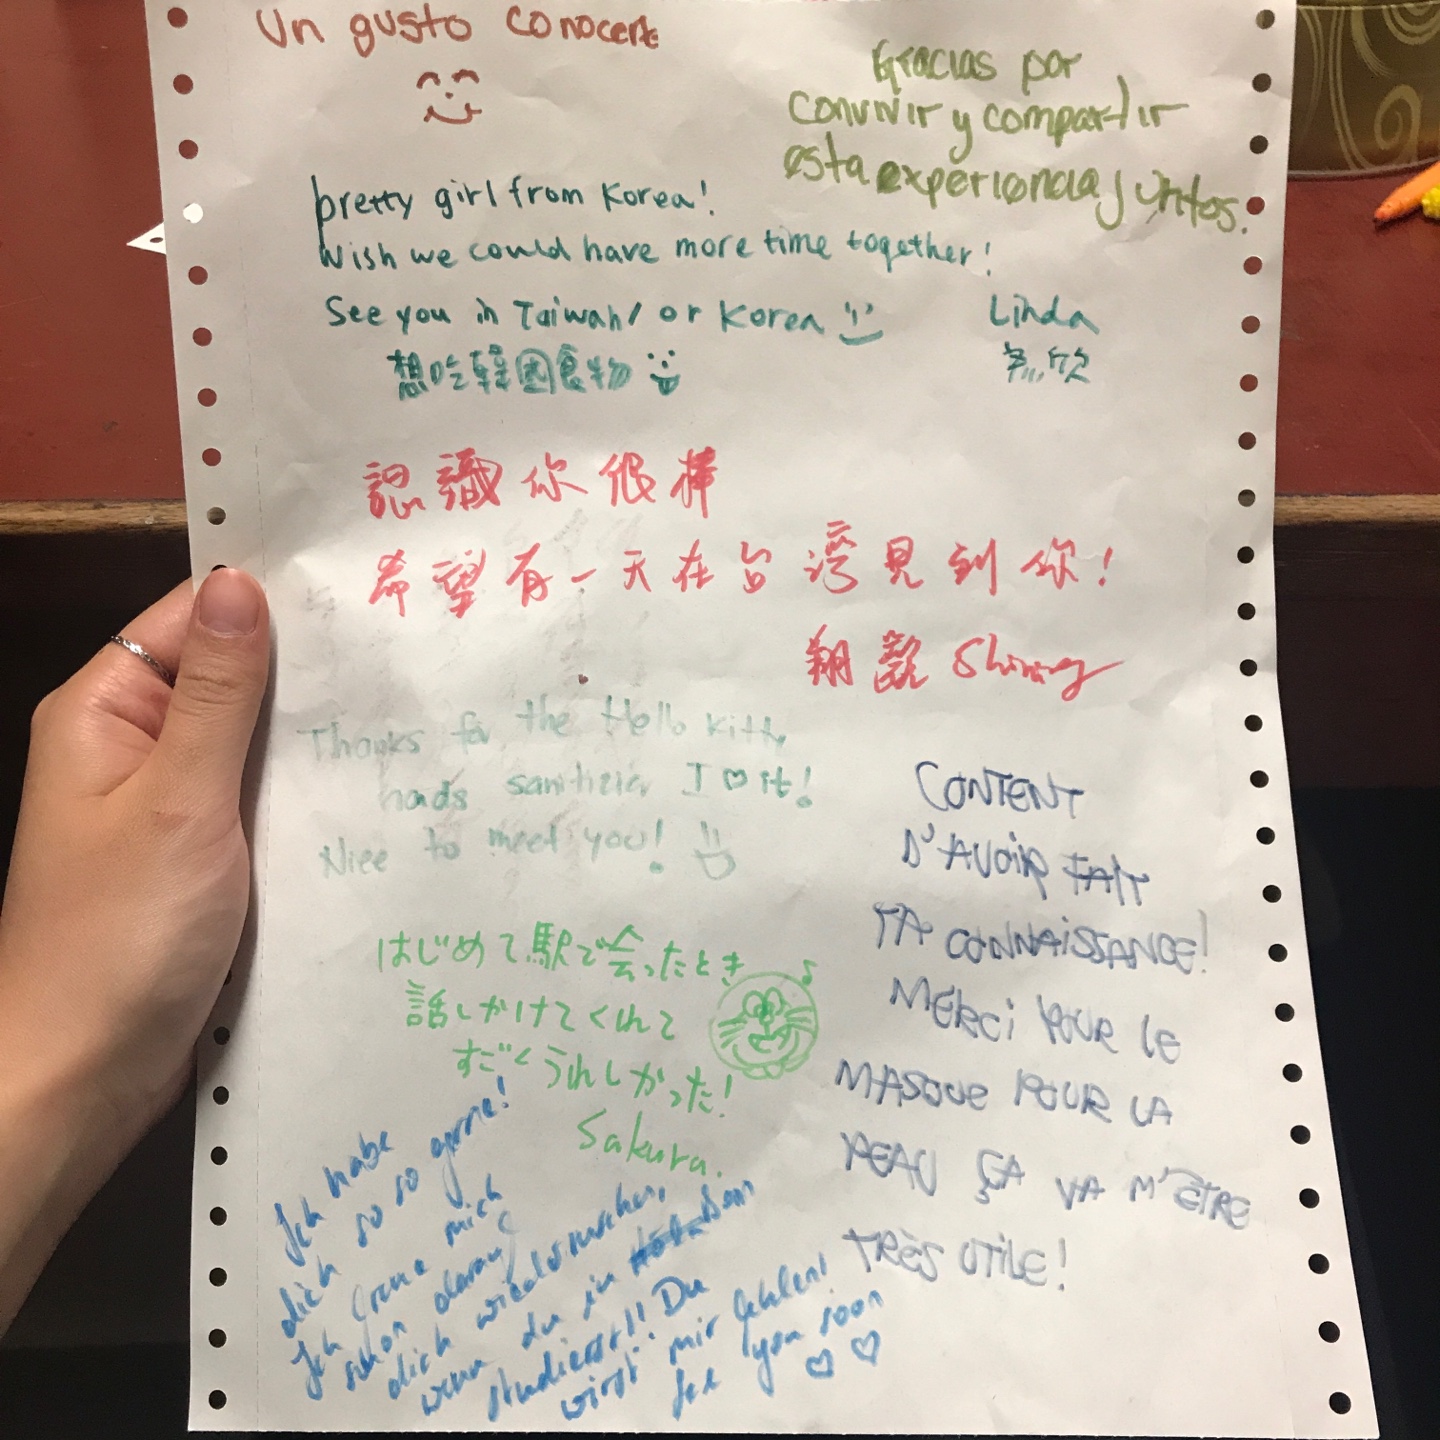 Un gusto conocerte
Gracias por
convivir y compartir
esta experiencia juntos.
pretty girl from Korea!
Wish we could have more time together!
See you in Taiwan/ or Korea
Linda
想吃韓國食物
欣
認識你很棒
希望有一天在台灣見到你!
翔 Shining
Thanks for the Hello Kitty
hads sanitizier I ♡ it!
Nice to meet you!
CONTENT
D'AVOIR FAIT
TA CONNAISSANCE!
MERCI POUR LE
MASQUE POUR LA
PEAU ÇA VA M'ÊTRE
TRÈS UTILE!
はじめて駅で会ったとき
話しかけてくれて
すごくうれしかった!
Sakura.
Ich habe
dich so so gerne!
Ich freue mich
schon darauf
dich wiederzusehen,
wenn du in Bonn
studierst!! Du
wirst mir fehlen!
See you soon
♡ ♡